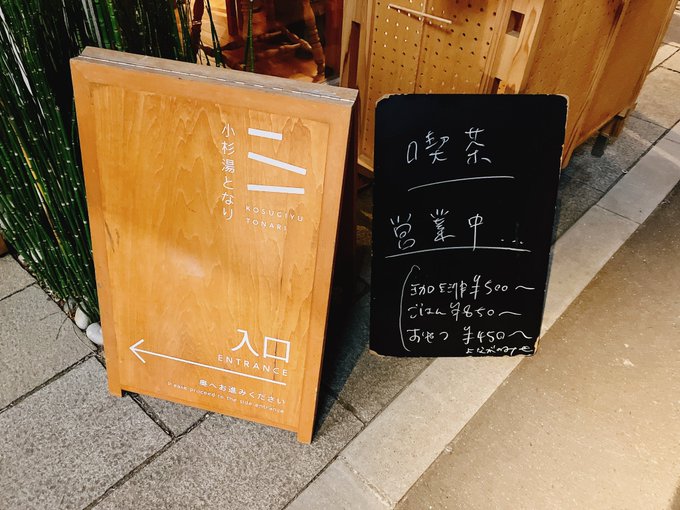 小杉湯となり
KOSUGIYU
TONARI
入口
ENTRANCE
奥へお進みください
Please proceed to the side entrance
喫茶
営業中...
珈琲¥500〜
ごはん¥850〜
おやつ ¥450〜